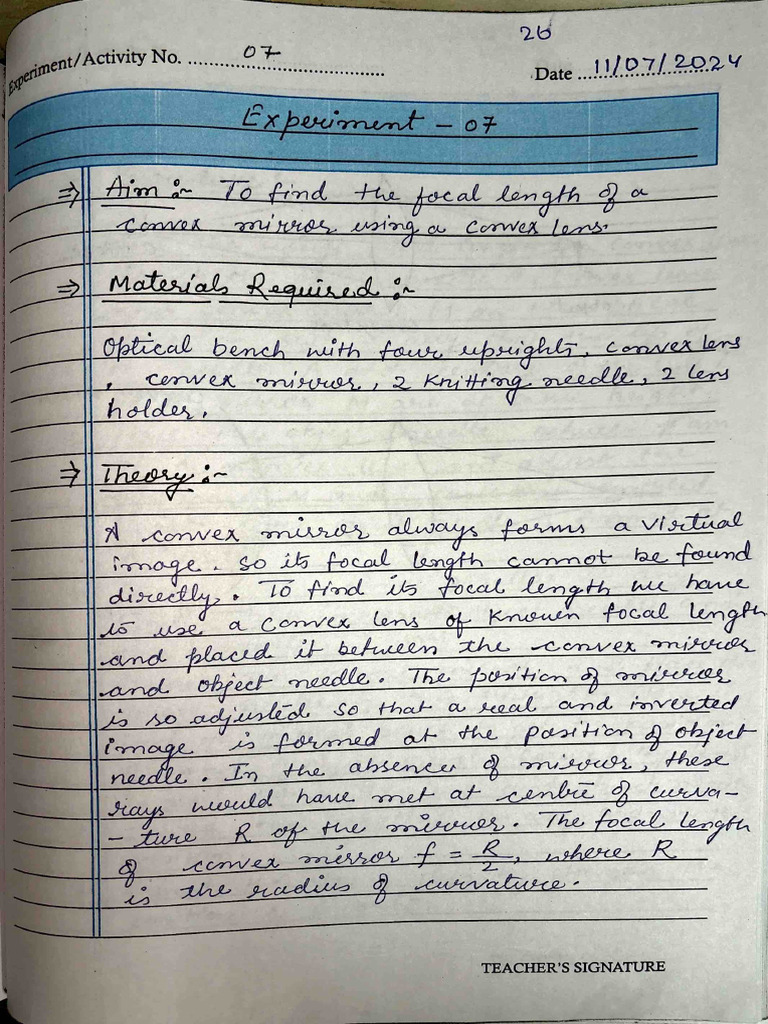 26
Experiment/Activity No. .......07.......
Date ...11/07/2024
Experiment - 07
⇒ Aim :- To find the focal length of a
convex mirror using a convex lens.
⇒ Materials Required :-
Optical bench with four uprights, convex lens
, convex mirror, 2 knitting needle, 2 lens
holder.
⇒ Theory :-
A convex mirror always forms a virtual
image. So its focal length cannot be found
directly. To find its focal length we have
to use a convex lens of known focal length
and placed it between the convex mirror
and object needle. The position of mirror
is so adjusted so that a real and inverted
image is formed at the position of object
needle. In the absence of mirror, these
rays would have met at centre of curva-
-ture R of the mirror. The focal length
of convex mirror f = R/2, where R
is the radius of curvature.
TEACHER'S SIGNATURE